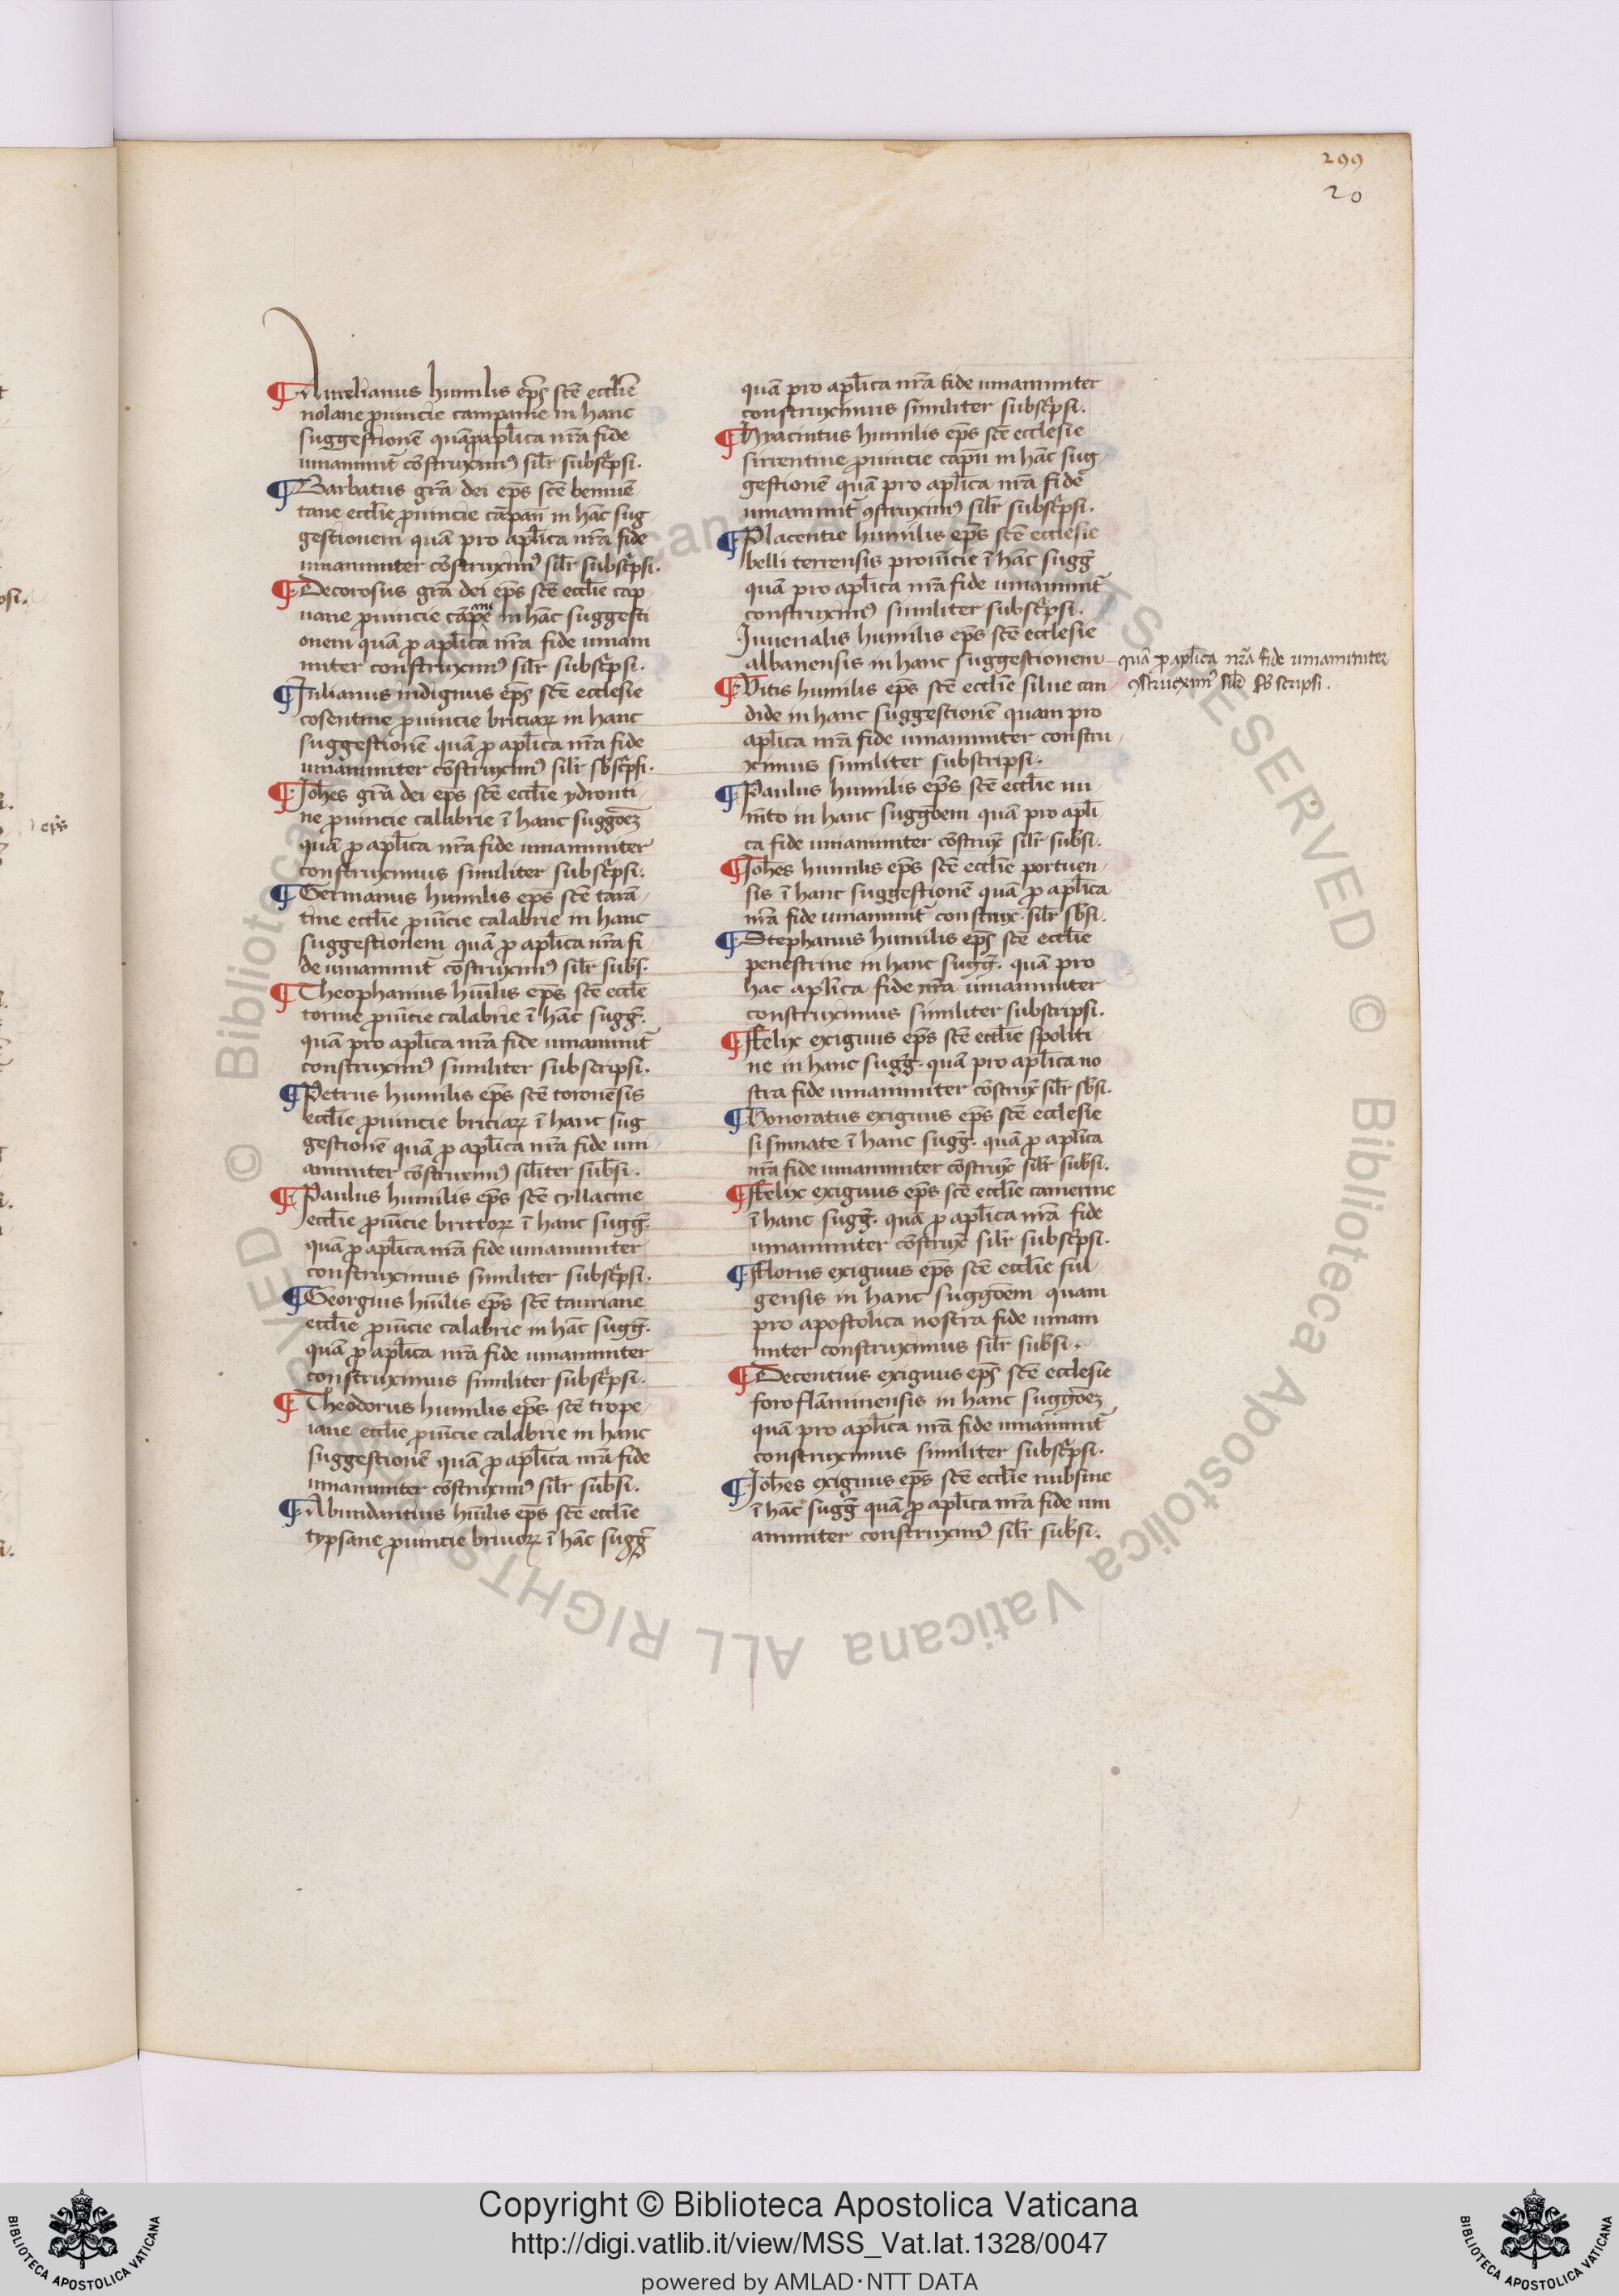 299
20
¶ Aurelianus humilis ep̄s sc̄e eccl̄ie
nolane ꝓuincie campanie in hanc
suggestionē quāꝓapl̄ica nr̄a fide
unanimit̄ cōstruximꝰ sil̄r subsc̄psi.
¶ Barbatus gr̄a dei ep̄s sc̄e beniuē
tane eccl̄ie ꝓuincie cāpan̄ in hāc sug
gestionem quā pro apl̄ica nr̄a fide
unanimiter cōstruximꝰ sil̄r subsc̄psi.
¶ Decorosus gr̄a dei ep̄s sc̄e eccl̄ie cap
uane ꝓuincie cāpanie in hāc suggesti
onem quā ꝓ apl̄ica nr̄a fide unani
miter construximꝰ sil̄r subsc̄psi.
¶ Julianus indignus ep̄s sc̄e ecclesie
cosentine ꝓuincie briciaꝝ in hanc
suggestionē quā ꝓ apl̄ica nr̄a fide
unanimiter cōstruximꝰ sil̄r sb̄sc̄psi.
¶ Joh̄es gr̄a dei ep̄s sc̄e eccl̄ie ydronti
ne ꝓuincie calabrie ī hanc suggōeꝫ
quā ꝓ apl̄ica nr̄a fide unanimiter
construximus similiter subsc̄psi.
¶ Germanus humilis ep̄s sc̄e tarā
tine eccl̄ie ꝓuīcie calabrie in hanc
suggestionem quā ꝓ apl̄ica nr̄a fi
de unanimit̄ cōstruximꝰ sil̄r subs̄.
¶ Theophanius hūilis ep̄s sc̄e eccl̄e
torine ꝓuīcie calabrie ī hāc sugḡ.
quā pro apl̄ica nr̄a fide unanimit̄
construximꝰ similiter subscripsi.
¶ Petrus humilis ep̄s sc̄e toronēsis
eccl̄ie ꝓuincie briciaꝝ ī hanc sug
gestionē quā ꝓ apl̄ica nr̄a fide un
animiter cōstruximꝰ siliter sub̄si.
¶ Paulus humilis ep̄s sc̄e cyllacine
eccl̄ie ꝓuīcie brittoꝝ ī hanc sugḡ.
quā ꝓ apl̄ica nr̄a fide unanimiter
construximus similiter subsc̄psi.
¶ Georgius hūilis ep̄s sc̄e tauriane
eccl̄ie ꝓuīcie calabrie in hāc sugḡ.
quā ꝓ apl̄ica nr̄a fide unanimiter
construximus similiter subsc̄psi.
¶ Theodorus humilis ep̄s sc̄e trope
iane eccl̄ie ꝓuīcie calabrie in hanc
suggestionē quā ꝓ apl̄ica nr̄a fide
unanimiter cōstruximꝰ sil̄r sub̄si.
¶ Abundantius hūilis ep̄s sc̄e eccl̄ie
typsane ꝓuincie briuoꝝ ī hāc sugḡ
quā pro apl̄ica nr̄a fide unanimiter
construximus similiter subsc̄psi.
¶ Hyacintus humilis ep̄s sc̄e ecclesie
sirrentine ꝓuincie cāpn̄ in hāc sug
gestionē quā pro apl̄ica nr̄a fide
unanimit̄ ꝯstruximꝰ sil̄r subsc̄psi.
¶ Placentie humilis ep̄s sc̄e ecclesie
belli terrensis prouīcie ī hāc sugḡ
quā pro apl̄ica nr̄a fide unanimit̄
construximꝰ similiter subsc̄psi.
Juuenalis humilis ep̄s sc̄e ecclesie
albanensis in hanc suggestionem quā ꝓ apl̄ica nr̄a fide unanimiter
ꝯstruximꝰ sil̄r sb̄scripsi.
¶ Vitis humilis ep̄s sc̄e eccl̄ie silue can
dide in hanc suggestionē quam pro
apl̄ica nr̄a fide unanimiter constru
ximus similiter subscripsi.
¶ Paulus humilis ep̄s sc̄e eccl̄ie nu
mīto in hanc suggōem quā pro apl̄i
ca fide unanimiter cōstrux̄ sil̄r sub̄si.
¶ Joh̄es humilis ep̄s sc̄e eccl̄ie portuen
sis ī hanc suggestionē quā ꝓ apl̄ica
nr̄a fide unanimit̄ construx̄. sil̄r sb̄si.
¶ Stephanus humilis ep̄s sc̄e eccl̄ie
penestrine in hanc sugḡ. quā pro
hac apl̄ica fide nr̄a unanimiter
construximus similiter subscripsi.
¶ Felix exiguus ep̄s sc̄e eccl̄ie spoliti
ne in hanc sugḡ. quā pro apl̄ica no
stra fide unanimiter cōstrux̄ sil̄r sb̄si.
¶ Honoratus exiguus ep̄s sc̄e ecclesie
si sinnate ī hanc sugḡ. quā ꝓ apl̄ica
nr̄a fide unanimiter cōstrux̄ sil̄r sub̄si.
¶ Felix exiguus ep̄s sc̄e eccl̄ie camerine
ī hanc sugḡ. quā ꝓ apl̄ica nr̄a fide
unanimiter cōstrux̄ sil̄r subsc̄psi.
¶ Florus exiguus ep̄s sc̄e eccl̄ie ful
gensis in hanc suggōem quam
pro apostolica nostra fide unani
miter construximus sil̄r sub̄si.
¶ Decentius exiguus ep̄s sc̄e ecclesie
foro flāminensis in hanc suggōeꝫ
quā pro apl̄ica nr̄a fide unanimit̄
construximus similiter subsc̄psi.
¶ Joh̄es exiguus ep̄s sc̄e eccl̄ie nubsine
ī hāc sugḡ quā ꝓ apl̄ica nr̄a fide un
animiter construximꝰ sil̄r sub̄si.
Copyright © Biblioteca Apostolica Vaticana
http://digi.vatlib.it/view/MSS_Vat.lat.1328/0047
powered by AMLAD·NTT DATA